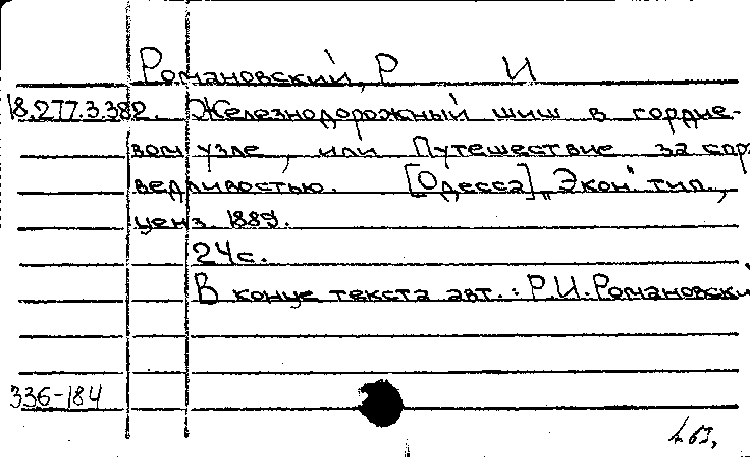 Романовский, Р И
18.277.3.382. Железнодорожный шиш в гордие-
вом узле, или Путешествие за спра
ведливостью. [Одесса], "Экон" тип.,
ценз. 1889.
24с.
В конце текста авт.: Р.И.Романовски
336-184